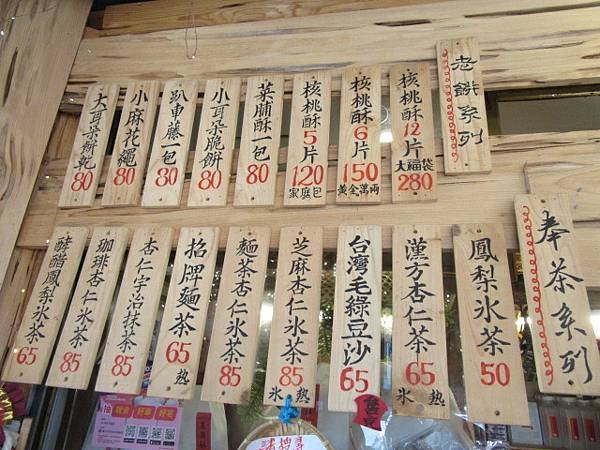 老餅系列
核桃酥12片
大福袋
280
核桃酥6片
150
黃金萬兩
核桃酥5片
120
家庭包
菜脯酥一包
80
小耳朵脆餅
80
趴車藤一包
80
小麻花繩
80
大耳朵餅乾
80
奉茶系列
鳳梨氷茶
50
漢方杏仁茶
65
氷 熱
台灣毛綠豆沙
65
芝麻杏仁氷茶
85
氷 熱
麵茶杏仁氷茶
85
招牌麵茶
65
熱
杏仁宇治抹茶
85
珈琲杏仁氷茶
85
酵醋鳳梨氷茶
65